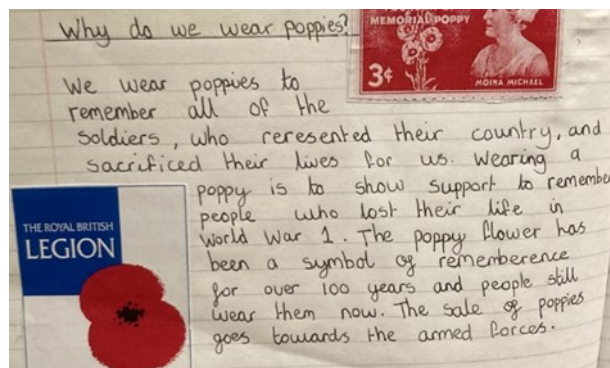 Why do we wear poppies?
MEMORIAL POPPY
3¢
MOINA MICHAEL
We wear poppies to
remember all of the
soldiers, who reresented their country, and
sacrificed their lives for us. Wearing a
poppy is to show support to remember
people who lost their life in
World War 1. The poppy flower has
been a symbol of rememberence
for over 100 years and people still
wear them now. The sale of poppies
goes towards the armed forces.
THE ROYAL BRITISH
LEGION